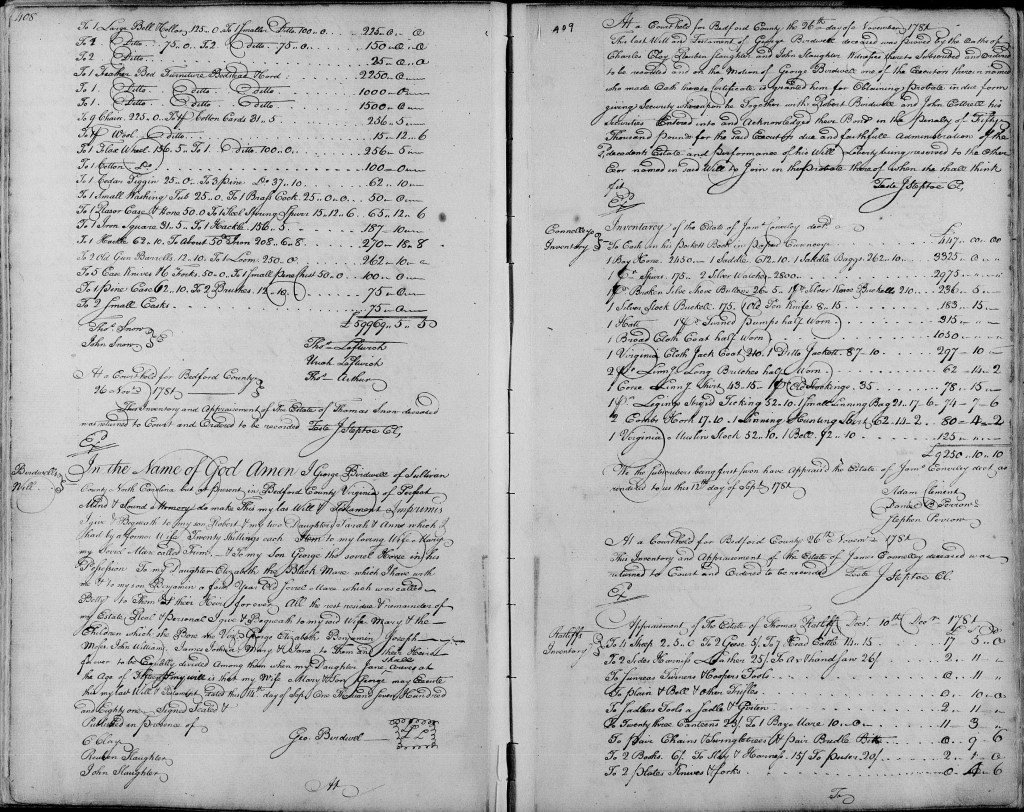 408
To 1 Large Bell Mettor 125.0 To 1 Smaller Ditto 100.0 225 .. 0 .. 0
To 2 Ditto 75.0 To 2 Ditto 75.0 150 .. 0 .. 0
To 2 Ditto 25 .. 0 .. 0
To 1 Feather Bed Furniture Bedstead & Cord 2250 .. 0
To 1 Ditto Ditto Ditto 1000 .. 0
To 1 Ditto Ditto Ditto 1500 .. 0
To 9 Chairs 225.0 To 1 pr Cotton Cards 31..5 256 .. 5
To 1 pr Wool Ditto 15 .. 12 .. 6
To 1 Flax Wheel 156.5 To 1 Ditto 100.0 256 .. 5
To 1 Cotton Do 100 .. 0
To 1 Cedar Piggin 25..0 To 3 pine Do 37..10 62 .. 10
To 1 Small Washing Tub 25.0 To 1 Brass Cock 25..0..0 50 .. 0
To 1 Rasor Case & Hone 50.0 To 1 Steel Spring Spurs 15..12..6 65 .. 12 .. 6
To 1 Iron Square 31..5 To 1 Hackle 156..5 187 .. 10
To 1 Hackle 62..10 To About 50 lb Iron 208..6..8 270 .. 16 .. 8
To 2 Old Gun Barrells 12..10 To 1 Loom 250.0 262 .. 10
To 5 Case Knives & 6 forks 50.0 To 1 Small pine Chest 50..0 100 .. 0
To 1 pine Case 62..10 To 2 Brushes 12..10 75 .. 0
To 2 Small Casks 75 .. 0
£59969 .. 5 .. 5
Thos Snow
John Snow
Thos Leftwich
Uriah Leftwich
Thos Arthur
At a Court held for Bedford County
26 Novr 1781
This Inventory and Appraisement of The Estate of Thomas Snow deceased
was returned to Court and Ordered to be recorded Teste J Steptoe Cl,
Birdwell's
Will
In the Name of God Amen I George Birdwell of Sullivan
County North Carolina but at present in Bedford County Virginia of Perfect
Mind & Sound Memory do make This my las Will & Testament Imprimis
I give & Bequeath to my son Robert & my two Daughters Sarah & Anne which I
had by a former Wife Twenty Shillings each Item to my loving Wife Mary
my Sorrel Mare called & To my Son George the sorrel Horse in his
Possession To my Daughter Elizabeth the Black Mare which I have with
me & to my son Benjamin a four Year Old Sorrel Mare which was called
Bettys to Them & their Heirs for ever All the rest residue & remainder of
my Estate Real & Personal I give & Bequeath to my said Wife Mary & the
Children which she Bore me Viz George Elizabeth Benjamin Joseph
Moses John William James Joshua Mary & Jane to Them and their Heirs
forever to be Equally divided Among them when my Daughter Jane shall arrives at
the Age of Fifteen my will is that my Wife Mary & Son George may Execute
this my last Will & Testament dated this 14th day of Sept. One thousand Seven Hundred
and Eighty one Signed Sealed &
Published in presence of
C Clay
Reuben Slaughter
John Slaughter
Geo. Birdwell
LS
At
409
At a Court held for Bedford County the 26th day of November 1781
This last Will and Testament of George Birdwell deceased was proved by the Oaths of
Charles Clay Reuben Slaughter and John Slaughter Witnesses thereto Subscribed and Ordered
to be recorded and on the Motion of George Birdwell one of the Executors therein named
who made Oath thereto Certificate is granted him for Obtaining Probate in due form
giving Security whereupon he Together with Robert Birdwell and John Cottrell his
Securities Entered into and Acknowledged there Bond in the penalty of Fifty
Thousand pounds for the said Executors due and faithfull Administration of the
decedents Estate and performance of his Will Liberty being reserved to the Other
Exor named in said Will to Join in the Probate thereof when she shall think
fit
Teste J Steptoe C,
Connelly's
Inventory
Inventorey of the Estate of Jams Conneley decd £
To Cash in his Pockett Book in pass'd Currency 447 .. 00 .. 00
1 Bay Horse 2450 .. 1 Saddle 612.10 1 Saddle Baggs 262..10 3325 .. 0
1 pr Spurs 175 .. 2 Silver Watches 2800 2975
1 pr Broken Silver Shoe Buttons 26..5 1 pr Silver Knee Buckells 210 236 .. 5
1 Silver Stock Buckell 175 1 Old Pen Knife 8..15 183 .. 15
1 Hatt 1 pr Turned Pumps half Worn 315
1 Broad Cloth Coat half Worn 1050
1 Virginia Cloth Jack Coat 210 .. 1 Ditto Jackett 87..10 297 .. 10
2 pr Linng Long Britches half Worn 62 .. 14 .. 2
1 Corse Linng Shirt 43..15 1 pr Old Stockings 35 78 .. 15
1 pr Legins Striped Ticking 52.10 1 Small Linning Bag 21..17..6 74 .. 7 .. 6
Combs & Hook 17.10 .. 1 Linning Hunting Shirt 62..14..2 80 .. 4 .. 2
1 Virginia Muslin Stock 52..10 1 Belt 72..10 125
£9250 .. 10 .. 10
We the subscribers being first sworn have Appraised the Estate of Jams Conneley decd as
rendered to us this 12th day of Sept 1781
Adam Clement
Daniel B Perrow
Stephen Perrow
At a Court held for Bedford County 26th Novemr 1781
This Inventory and Appraisement of the Estate of James Connelley deceased was
returned to Court and Ordered to be recorded Teste J Steptoe Cl.
Ratliffs
Inventory
Appraisment of The Estate of Thomas Ratliff Decd 10th Decr 1781 £ S D
To 14 Sheep 2.5.0 To 2 Geese 5/ To 7 Head Cattle 14..15 17 .. 5 .. 0
To 2 Sides Harness Leather 25/ To Ax & handsaw 26/ 2 .. 11
To Turners & Coopers Tools 0 .. 11
To plain & Bell & other Trifles 0 .. 10 .. 0
To Sadlers Tools a Sadle & Girten 2 .. 11
To Twenty three Canteens 23/ To 1 Baye Mare 10..0 11 .. 3
To pair Chains & Swingletrees & pair Bridle Bitts 0 .. 9 .. 6
To 2 Books 6/ To Hay & Harness 15/ To puter 20/ 2 .. 1 .. 0
To 2 plates Knives & forks 0 .. 4 .. 6
To